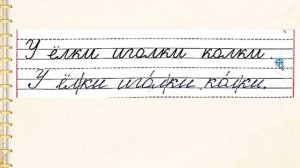 У ёлки иголки колки.
У ёлки иго́лки ко́лки.